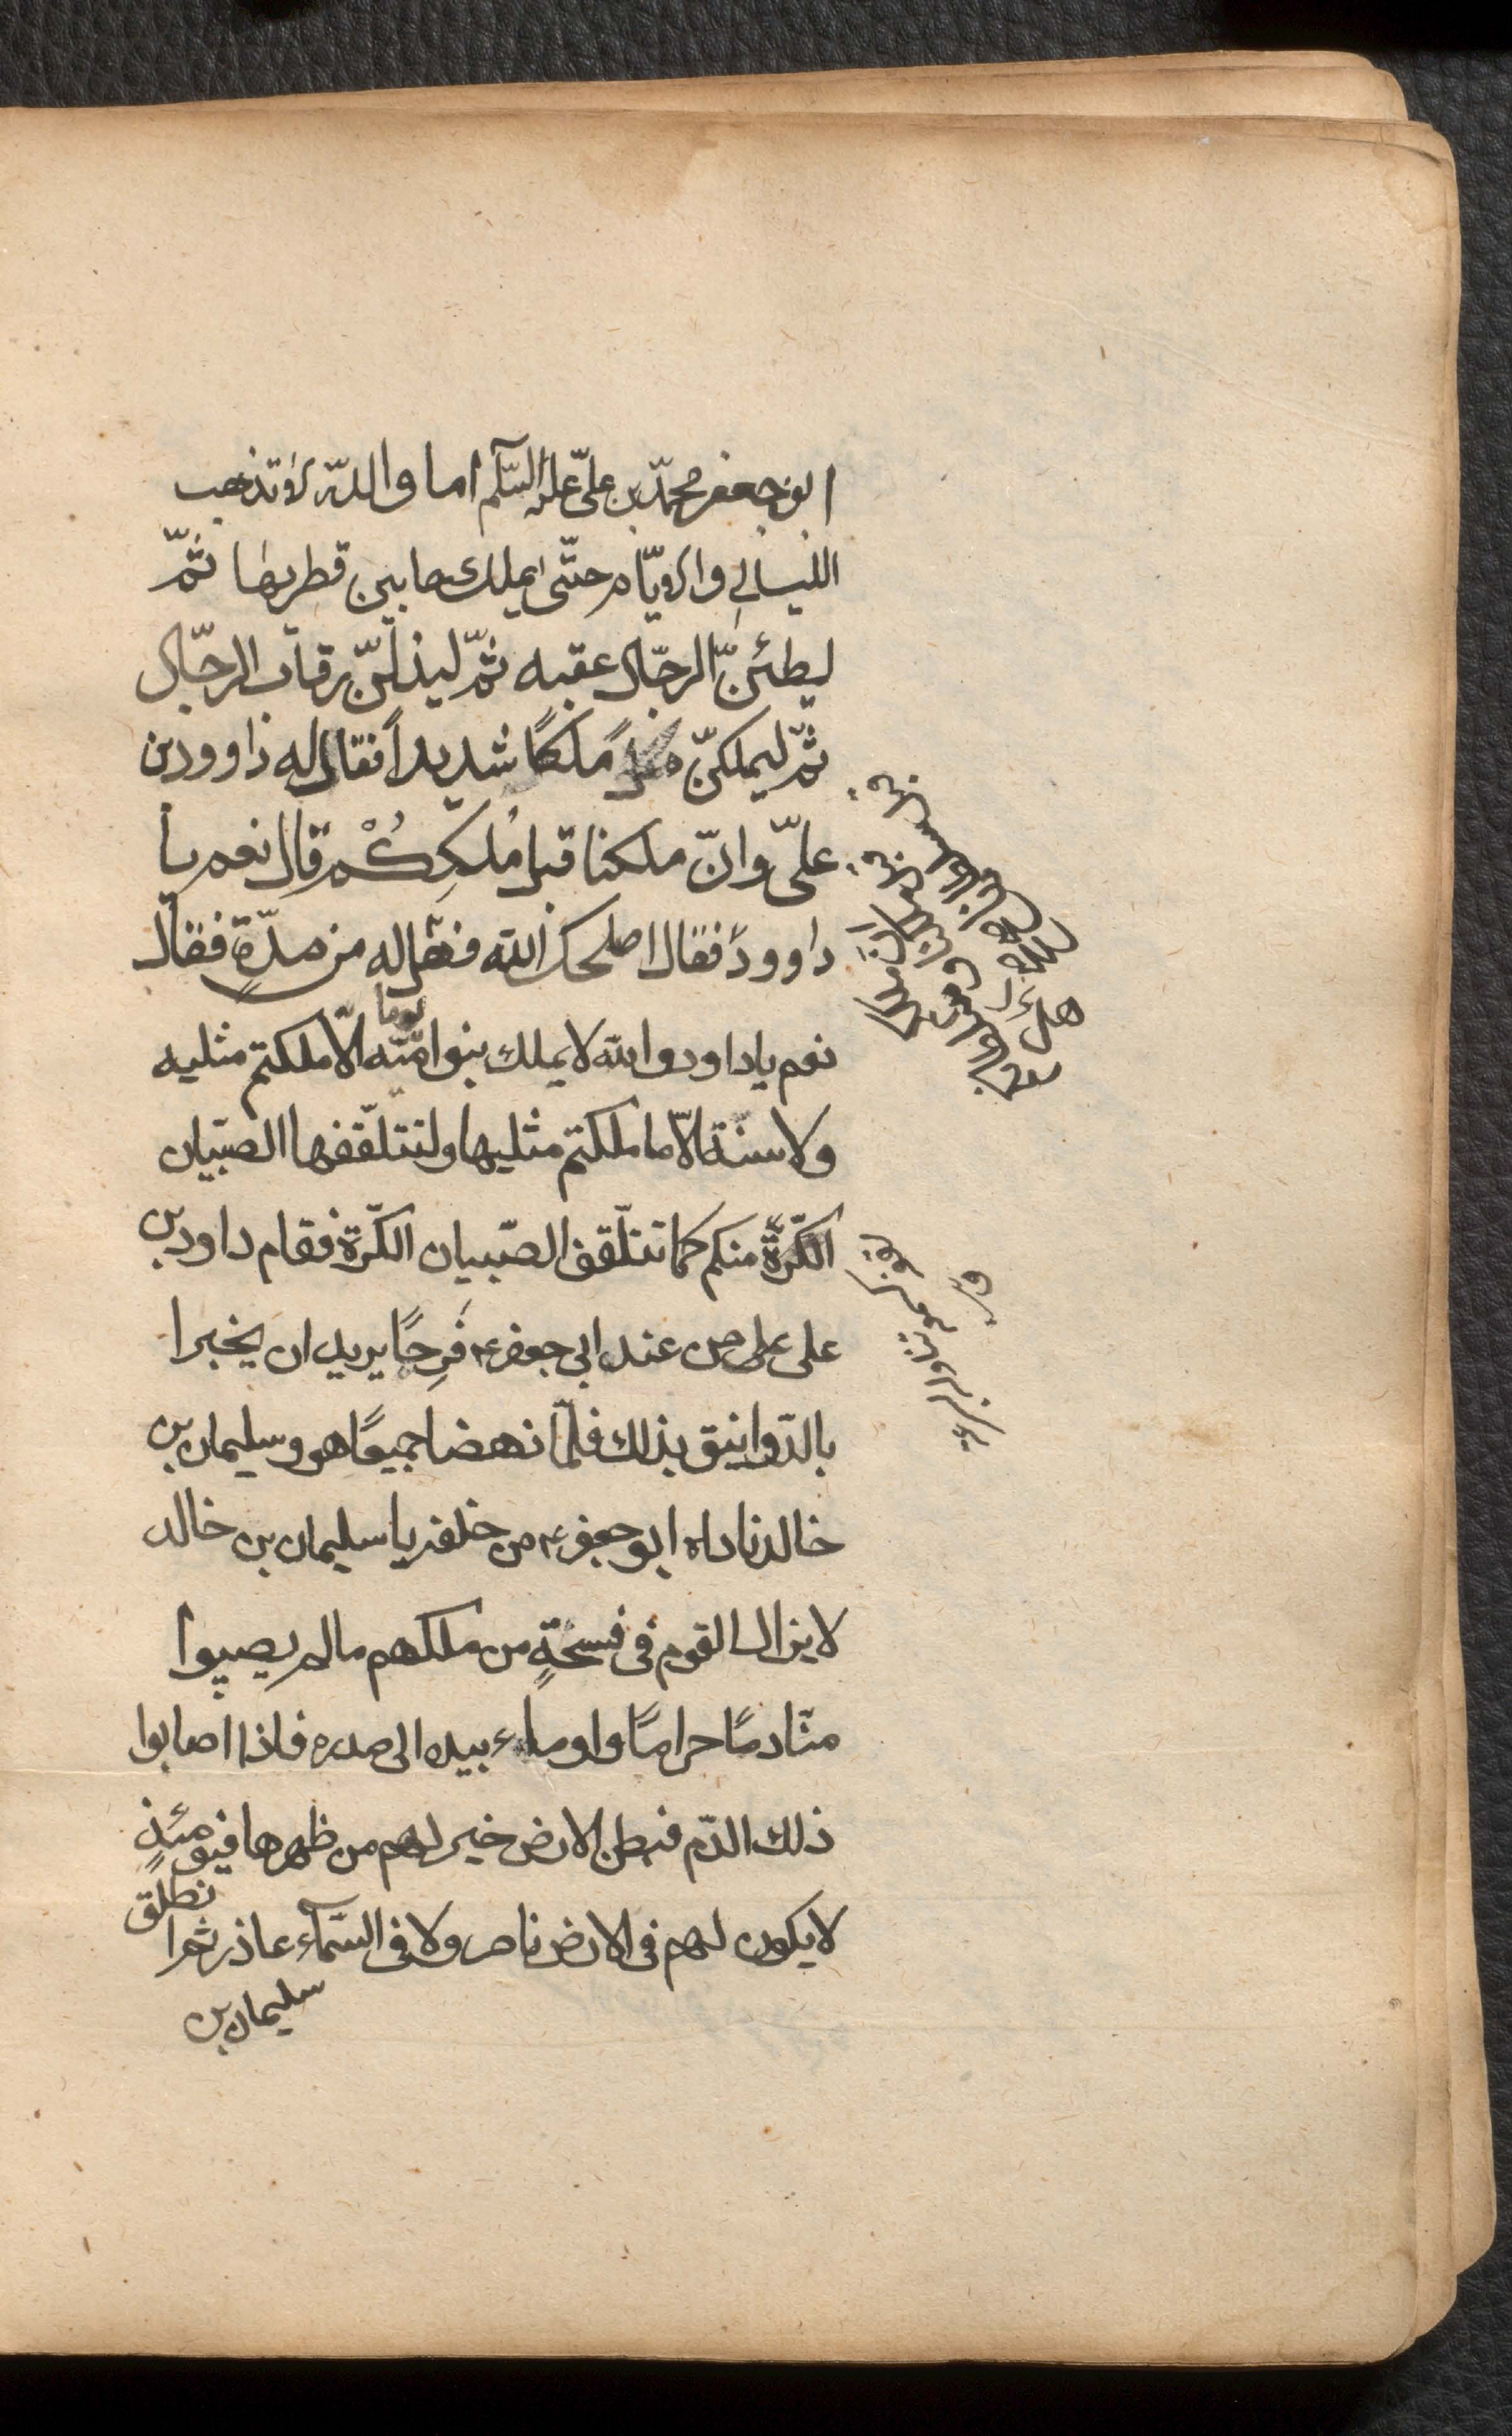 ابو جعفر محمّد بن علىّ عليه السّلم اما والله لا تذهب
الليالي والايّام حتّى يملك ما بين قطريها ثمّ
ليطئنّ الرجال عقبه ثمّ ليذلنّ رقاب الرجال
ثمّ ليملكنّ ملكًا شديداً فقال له داوود بن
علىّ وانّ ملكنا قبل مُلكِكُمْ قال نعم يا
داوود فقال اصلحك الله فهل له من مدّةٍ فقال
نعم يا داود والله لا يملك بنوا اميّه يوما الّا ملكتم مثليه
ولا سنة الّا ما ملكتم مثليها ولتتلقّفها الصبيان
الكرّة منكم كما تتلّقف الصّبيان الكّرة فقام داود بن
على من عند ابى جعفر ع فَرِحًا يريد ان يخبر ا
بالدّوانيق بذلك فلّما نهضا جميعًا هو وسليمان بن
خالد ناداه ابو جعفر ع من خلفه يا سليمان بن خالد
لا يزال القوم فى فسحةٍ من ملكهم مالم يصيبوا
منّا دمًا حرامًا واوماء بيده الى صدره فاذا اصابوا
ذلك الدّم فبطن الارض خير لهم من ظهرها فيومئذٍ
لا يكون لهم فى الارض ناصر ولا فى السّمآء عاذر ثم انطلق
سليمان بن